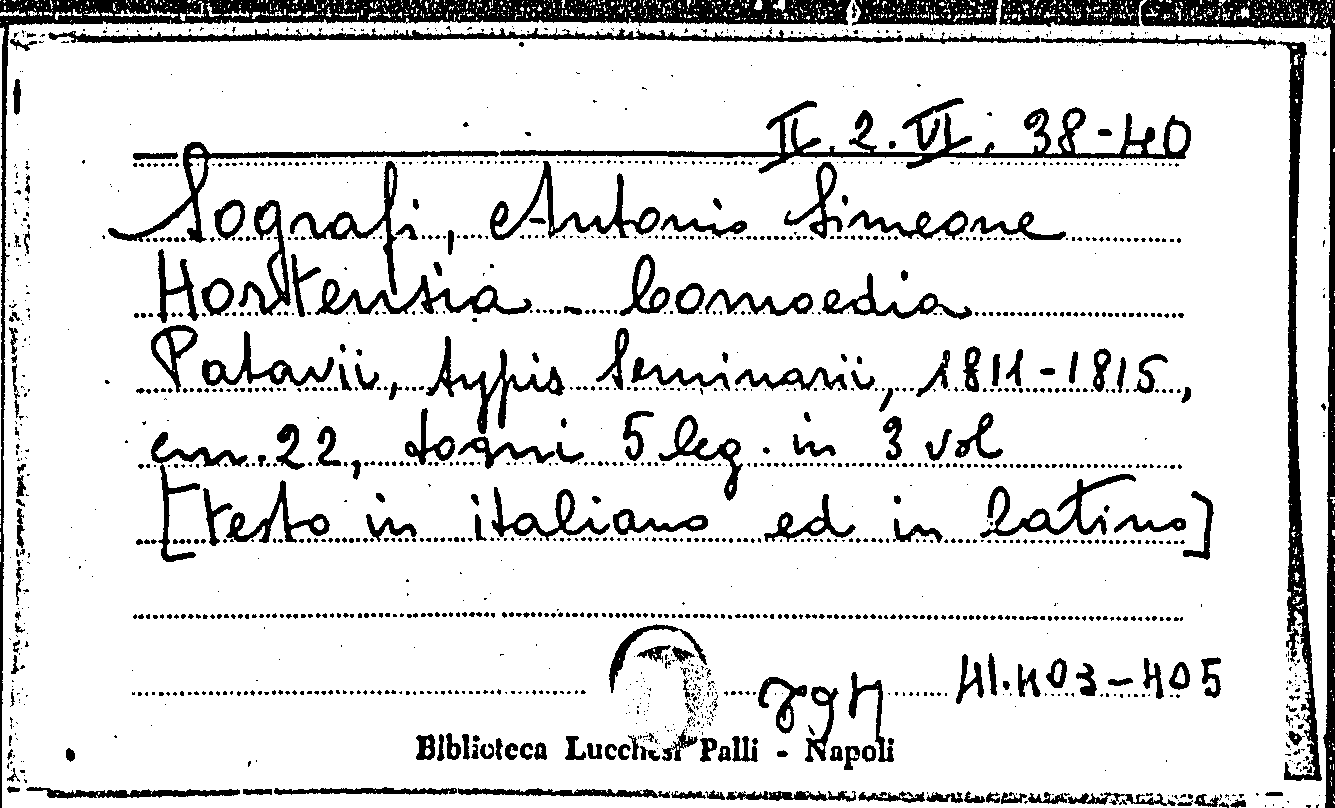 II. 2. VI. 38-40
Sografi, Antonio Simeone
Hortensia - Comoedia
Patavii, typis Seminarii, 1811-1815,
cm. 22, togni 5 leg. in 3 vol
[testo in italiano ed in latino]
41.403-405
Biblioteca Lucchesi Palli - Napoli